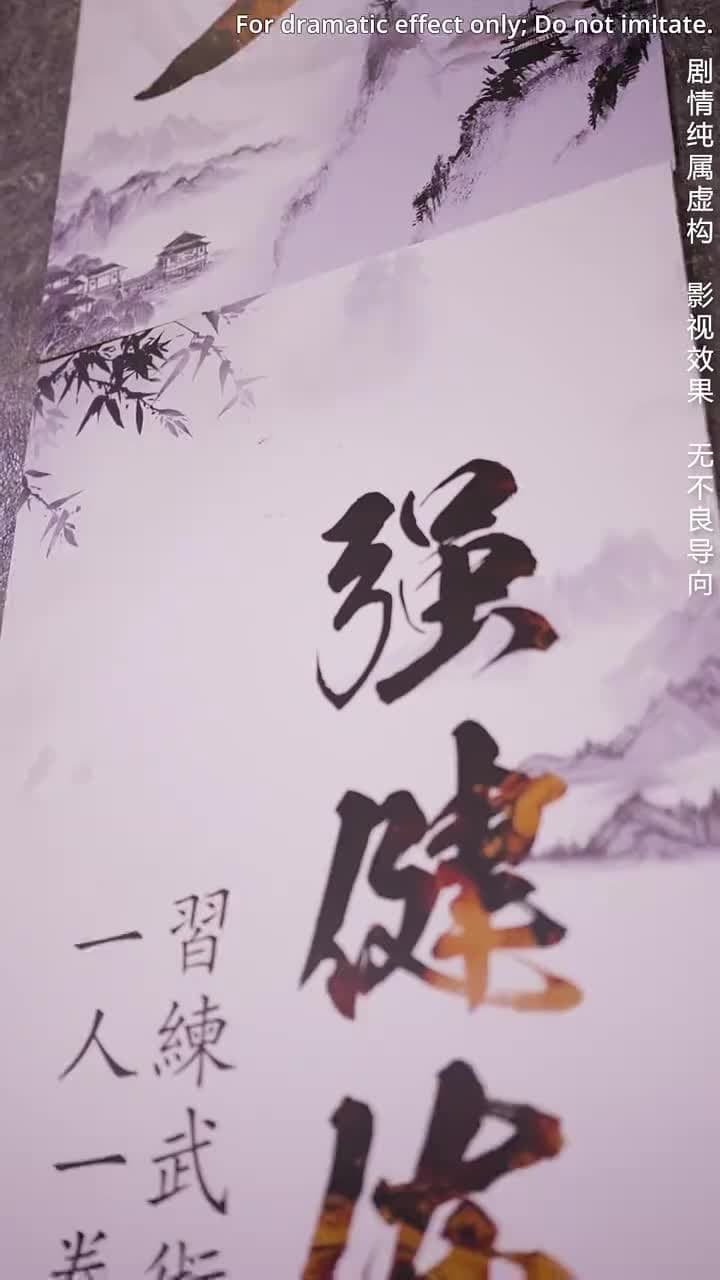 For dramatic effect only; Do not imitate.
剧情纯属虚构 影视效果 无不良导向
强健
習練武
一人一